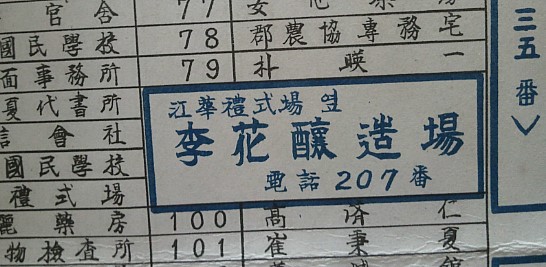 官舍 77
國民學校 78 郡農協專務宅
面事務所 79 朴暎一
夏代書所
信會社
國民學校
禮式場
江華禮式場 옆
李花釀造場
電話 207番
藥房 100 高済仁
物檢査所 101 崔秉夏
三五番